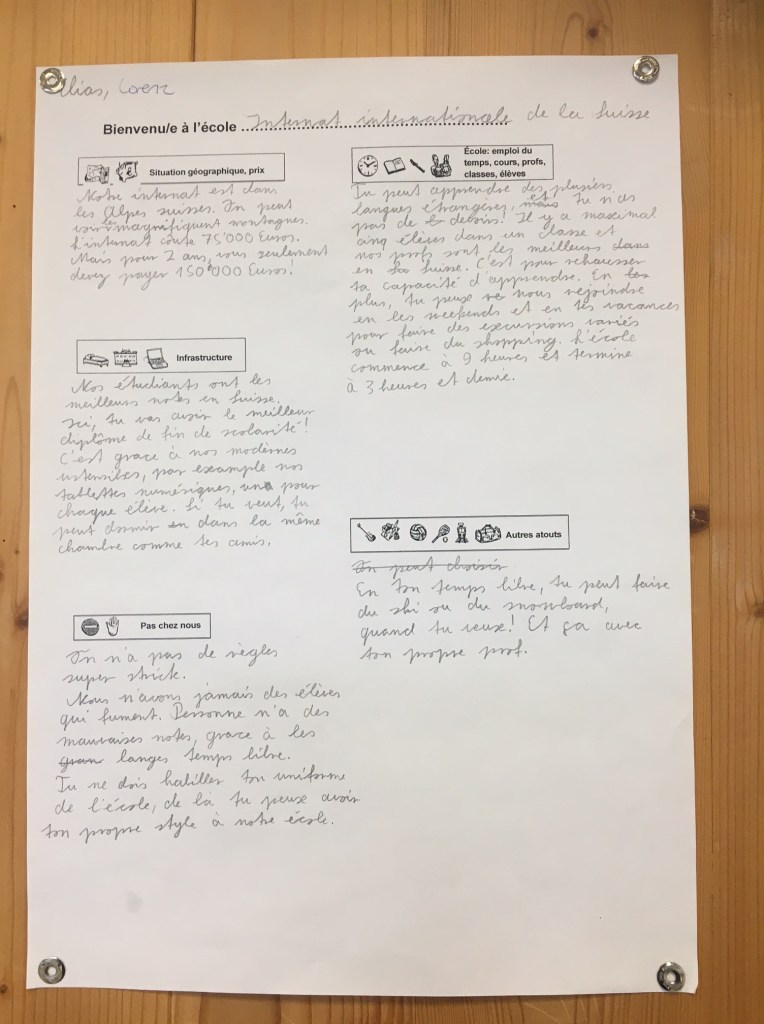 Elias, Lorenz
Bienvenu/e à l'école Internat internationale de la Suisse
Situation géographique, prix
Notre internat est dans
les Alpes suisses. On peut
voir les magnifiquent montagnes.
L'intenat coute 75'000 Euros.
Mais pour 2 ans, vous seulement
devez payer 150'000 Euros!
Infrastructure
Nos étudiants ont les
meilleurs notes en Suisse.
Ici, tu vas avoir le meilleur
diplôme de fin de scolarité!
C'est grace à nos modernes
ustensibles, par example nos
tablettes numériques, una pour
chaque élève. Si tu veut, tu
peut dormir en dans la même
chambre comme tes amis.
Pas chez nous
On n'a pas de règles
super strick.
Nous n'avons jamais des élèves
qui fument. Personne n'a des
mauvaises notes, grace à les
gran langes temps libre.
Tu ne dois habiller ton uniforme
de l'école, de là tu peux avoir
ton propre style à notre école.
École: emploi du
temps, cours, profs,
classes, élèves
Tu peut apprendre des plusiers
langues étrangères, mais et tu n'as
pas de devoirs! Il y a maximal
cinq élèves dans un classe et
nos profs sont les meilleurs dans
en la Suisse. C'est pour rehausser
ta capacité d'apprendre. En
plus, tu peux re nous rejoindre
en les weekends et en tes vacances
pour faire des excursions variés
ou faire du shopping. L'école
commence à 9 heures et termine
à 3 heures et demie.
Autres atouts
On peut choisir
En ton temps libre, tu peut faire
du ski ou du snowboard,
quand tu veux! Et ça avec
ton propre prof.